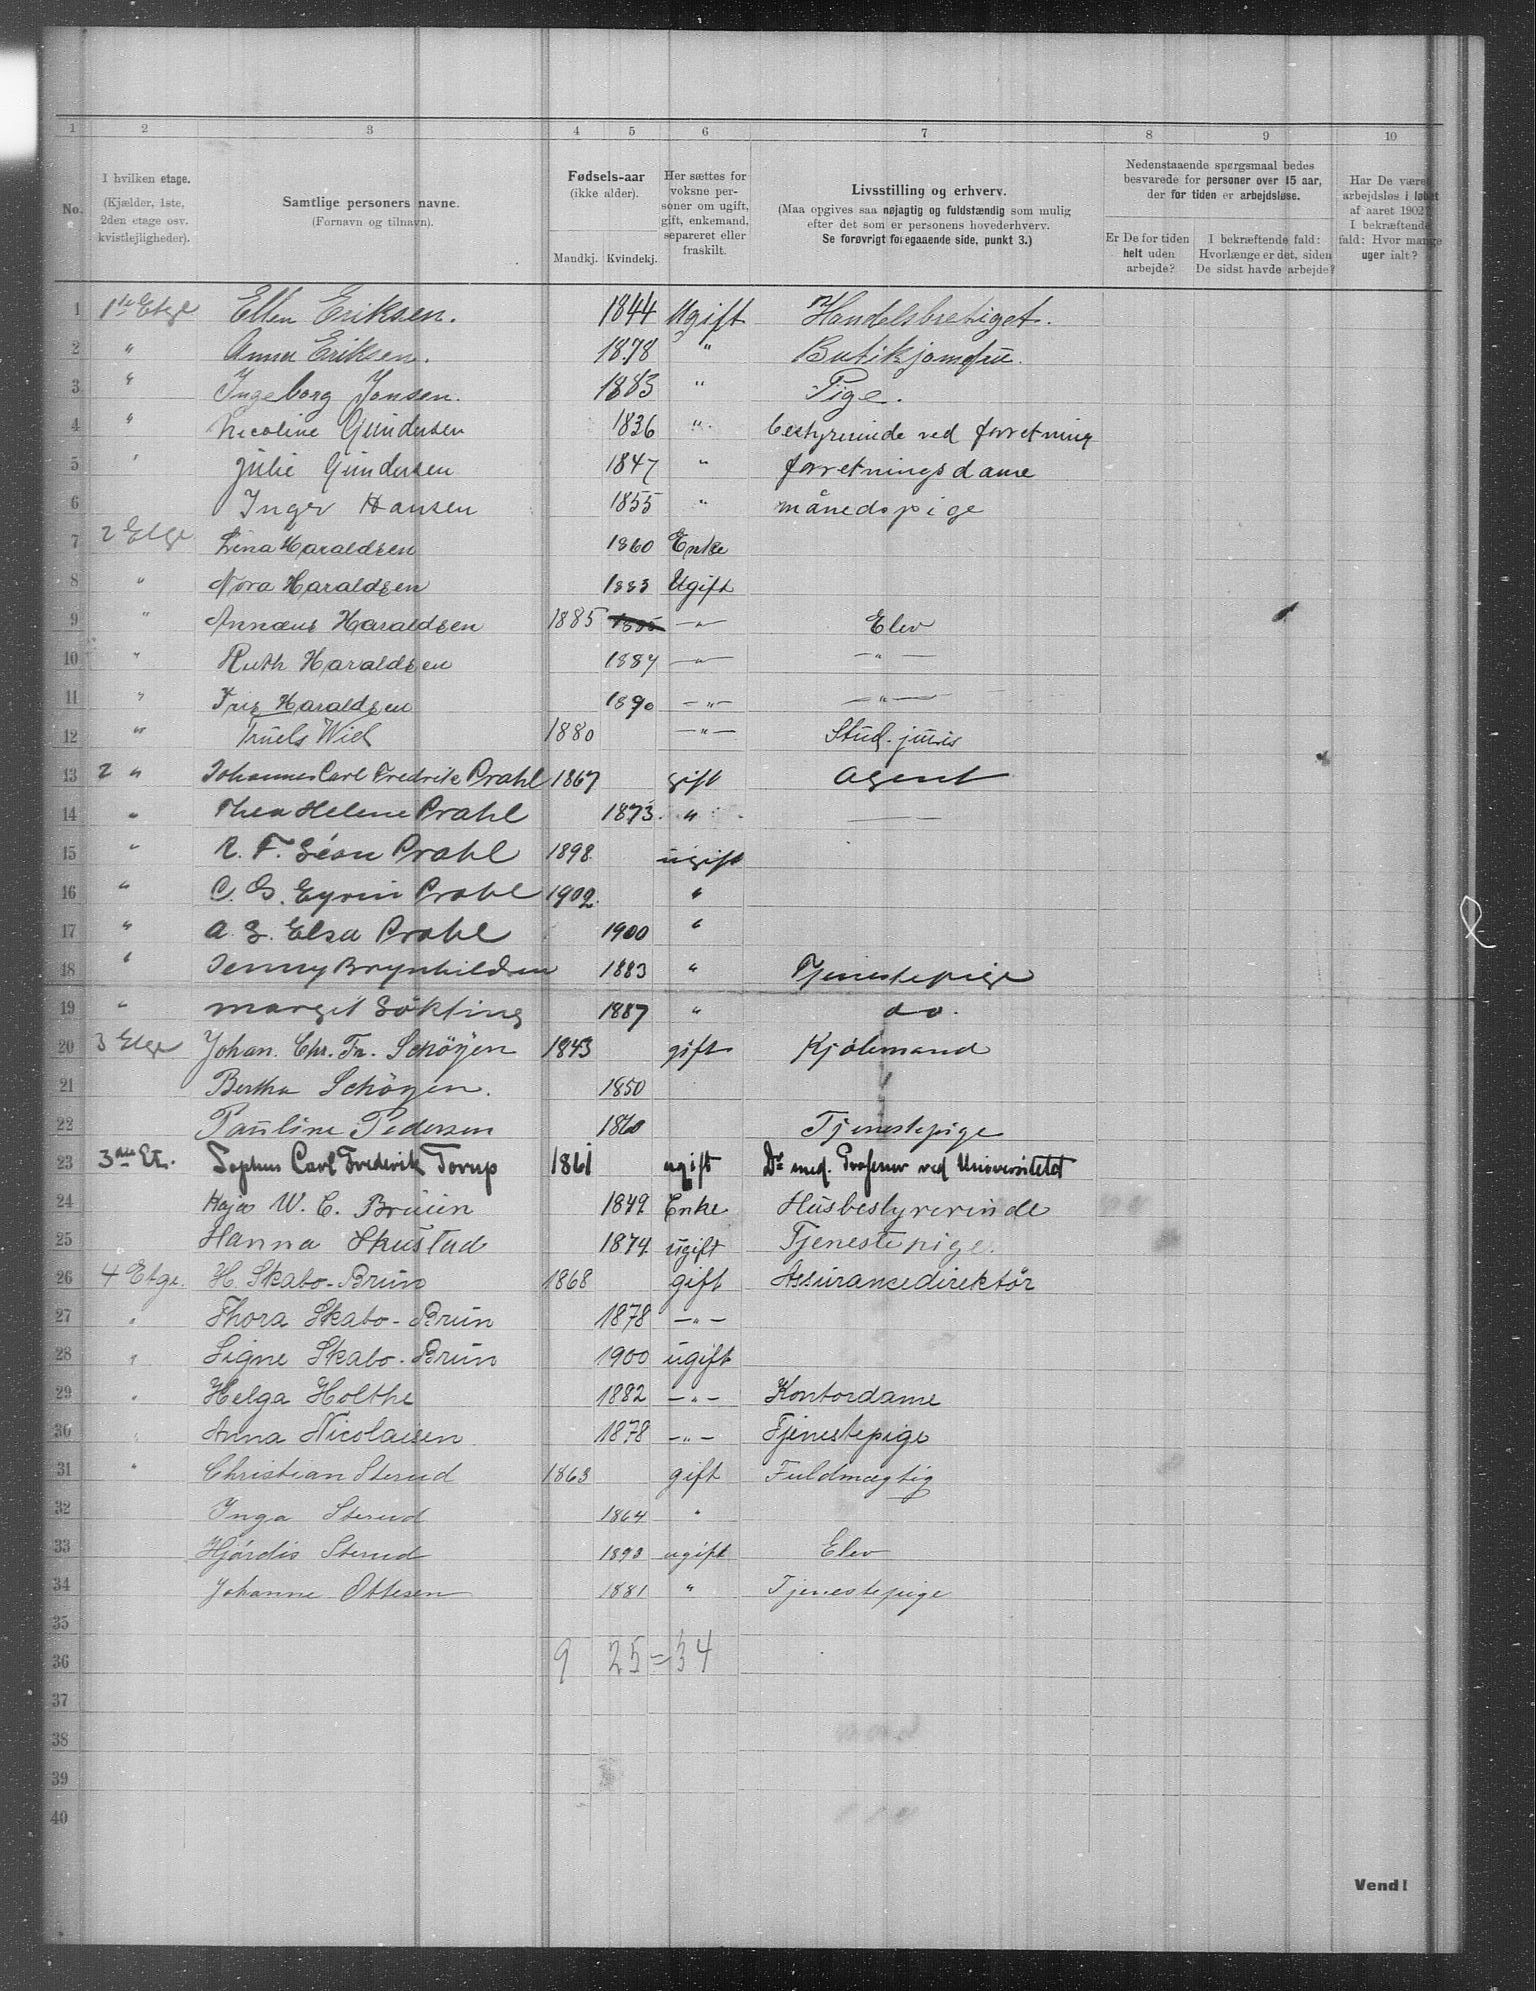 1 2 3 4 5 6 7 8 9 10
No.
I hvilken etage.
(Kjælder, 1ste,
2den etage osv.
kvistlejligheder).
Samtlige personers navne.
(Fornavn og tilnavn).
Fødsels-aar
(ikke alder).
Mandkj. Kvindekj.
Her sættes for
voksne per-
soner om ugift,
gift, enkemand,
separeret eller
fraskilt.
Livsstilling og erhverv.
(Maa opgives saa nøjagtig og fuldstændig som mulig
efter det som er personens hovederhverv.
Se forøvrigt foregaaende side, punkt 3.)
Nedenstaaende spørgsmaal bedes
besvarede for personer over 15 aar,
der for tiden er arbejdsløse.
Er De for tiden
helt uden
arbejde?
I bekræftende fald:
Hvorlænge er det, siden
De sidst havde arbejde?
Har De været
arbejdsløs i løbet
af aaret 1902?
I bekræftende
fald: Hvor mange
uger ialt?
1 1ste Etge Ellen Eriksen. 1844 Ugift Handelsbretiget.
2 " Anna Eriksen. 1878 " Butikjomfru.
3 " Ingeborg Jonsen. 1883 " Pige.
4 " Nicoline Gundersen 1836 " bestyrerinde ved forretning
5 " Julie Gundersen 1847 " forretningsdame
6 Inger Hansen 1855 " månedspige
7 2 Etge Lina Haraldsen 1860 Enke
8 " Nora Haraldsen 1883 Ugift
9 " Annæus Haraldsen 1885 1885 —"— Elev
10 " Ruth Haraldsen 1887 —"— —"—
11 " Iris Haraldsen 1890 —"— —"—
12 " Truels Wiel 1880 —"— Stud. juris
13 2 " Johannes Carl Fredrik Prahl 1867 gift Agent
14 " Thea Helene Prahl 1873. " —
15 " R. F. Léon Prahl 1898 ugift
16 " C. G. Eyvin Prahl 1902. "
17 " A. S. Elsa Prahl 1900 "
18 " Jenny Brynhildsen 1883 " Tjenestepige
19 " Margit Løkting 1887 " do.
20 3 Etge Johan. Chr. Fr. Schøyen 1843 gift Kjøbmand
21 Bertha Schøyen. 1850
22 Pauline Pedersen 1860 Tjenestepige
23 3die Et. Sophus Carl Frederik Torup 1861 ugift Dr med. Professor ved Universitetet
24 Kaja W. C. Bruun 1849 Enke Husbestyrerinde
25 Hanna Skustad 1874 ugift Tjenestepige.
26 4 Etge. H. Skabo-Brun 1868 gift Assurancedirektør
27 " Thora Skabo-Brun 1878 —"—
28 " Signe Skabo-Brun 1900 ugift
29 " Helga Holthe 1882 —"— Kontordame
30 " Anna Nicolaisen 1878 —"— Tjenestepige
31 " Christian Sterud 1863 gift Fuldmægtig
32 Inga Sterud 1864 "
33 Hjördis Sterud 1893 ugift Elev
34 Johanne Ottesen 1881 " Tjenestepige
35
36 9 25 = 34
37
38
39
40
Vend!